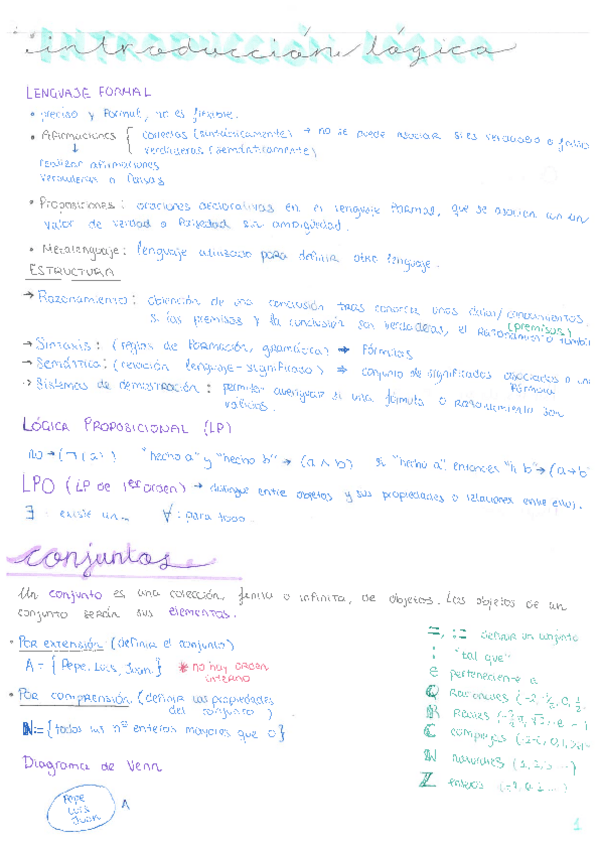 introducción lógica
LENGUAJE FORMAL
• preciso y formal, no es flexible.
• Afirmaciones { correctas (sintácticamente) → no se puede asociar si es verdadero o falso
verdaderas (semánticamente)
↓
realizar afirmaciones
verdaderas o falsas
• Proposiciones: oraciones declarativas en el lenguaje formal, que se asocian con un
valor de verdad o falsedad sin ambigüedad.
• Metalenguaje: lenguaje utilizado para definir otro lenguaje.
ESTRUCTURA
→ Razonamiento: obtención de una conclusión tras conocer unos datos/conocimientos.
(premisas)
si las premisas y la conclusión son verdaderas, el razonamiento también
→ Sintaxis: (reglas de formación, gramática) → Fórmulas
→ Semántica: (relación lenguaje-significado) → conjunto de significados asociados a una
fórmula
→ Sistemas de demostración: permiten averiguar si una fórmula o razonamiento son
válidos.
LÓGICA PROPOSICIONAL (LP)
no → (¬ a) "hecho a" y "hecho b" → (a ∧ b) si "hecho a" entonces "h b" → (a → b)
LPO (LP de 1er orden) → distingue entre objetos y sus propiedades o relaciones entre ellos.
∃ : existe un... ∀ : para todo.
conjuntos
Un conjunto es una colección, finita o infinita, de objetos. Los objetos de un
conjunto serán sus elementos.
• Por extensión (definir el conjunto)
A = {Pepe, Luis, Juan} * no hay orden
interno
• Por comprensión (definir las propiedades
del conjunto)
ℕ := {todos los nº enteros mayores que 0}
Diagrama de Venn
Pepe
Luis
Juan
A
=, := definir un conjunto
"tal que"
∈ perteneciente a
ℚ Racionales
ℝ Reales
ℂ complejos
ℕ naturales (1, 2, 3 ...)
ℤ enteros
1